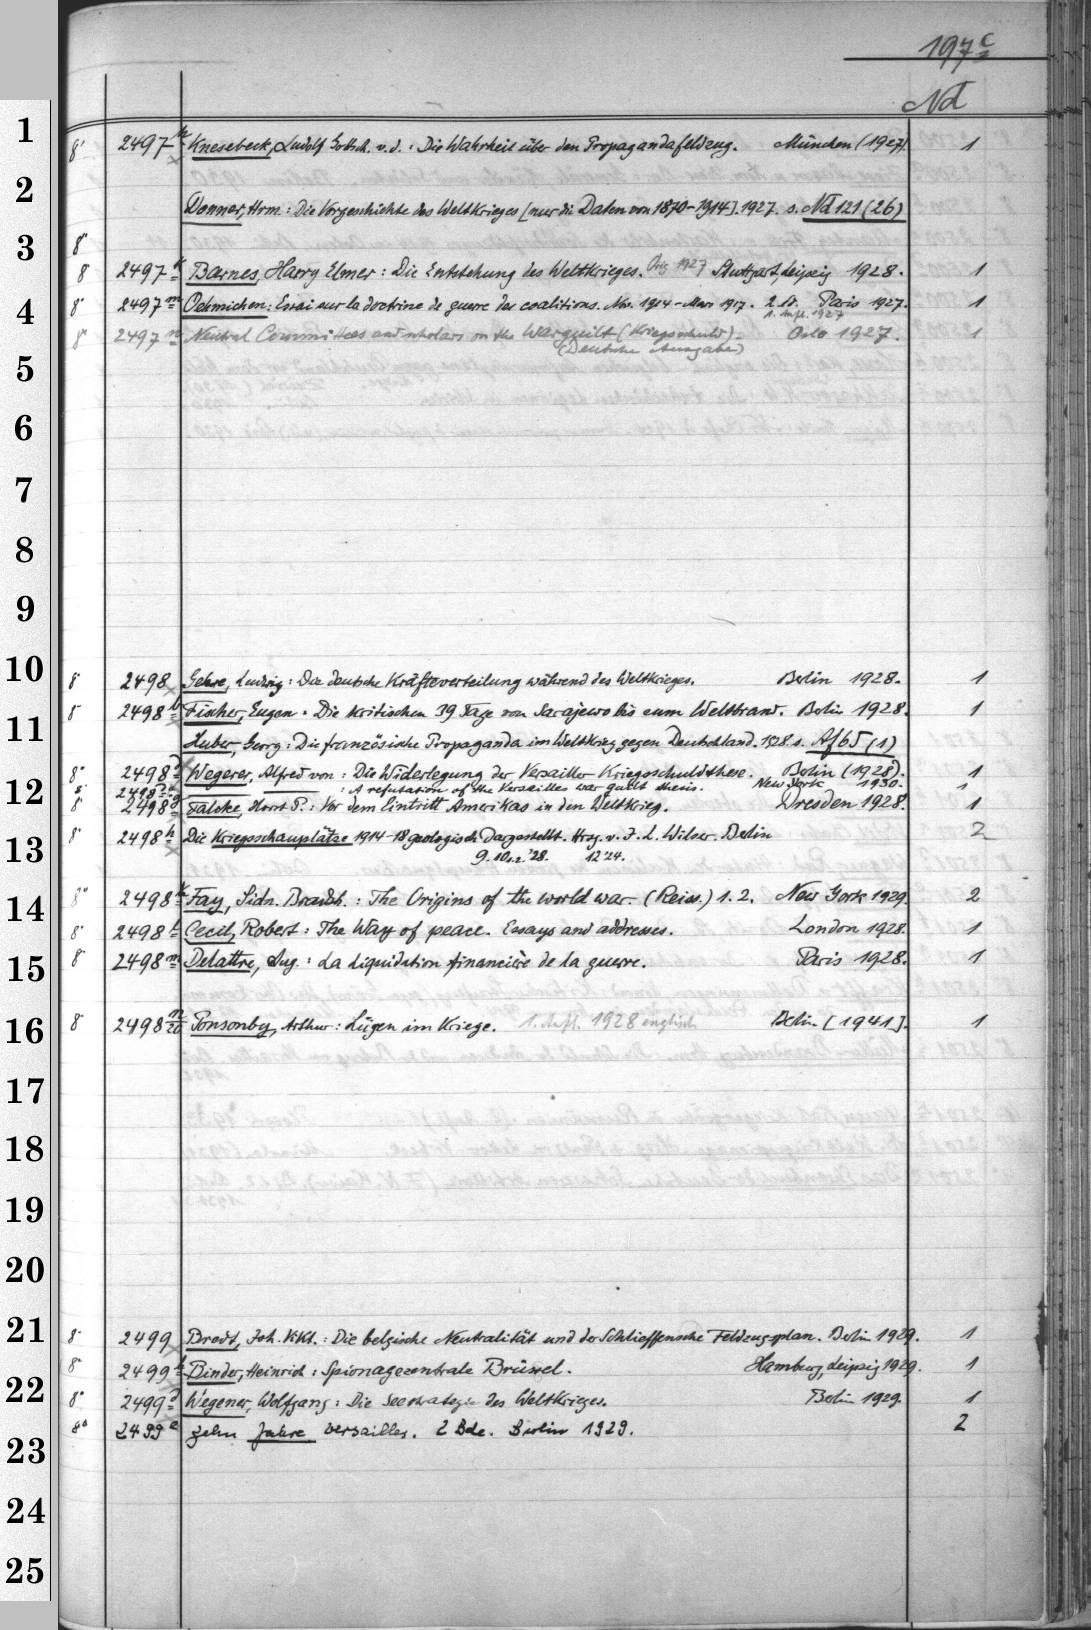 197c
Nd
1
8° 2497h Knesebeck, Ludolf Gottsch. v. d.: Die Wahrheit über den Propagandafeldzug. München (1927) 1
2
Donner, Hrm.: Die Vorgeschichte des Weltkrieges [nur die Daten von 1870-1914]. 1927. s. Nd 121 (26)
3
8°
8 2497k Barnes, Harry Elmer: Die Entstehung des Weltkrieges. Orig 1927 Stuttgart, Leipzig 1928. 1
4
8° 2497m Oehmichen: Essai sur la doctrine de guerre des coalitions. Nov. 1914-Mars 1917. Paris 1927. 1
1. Aufl. 1927
8° 2497n Neutral Committees and scholars on the Warguilt (Kriegsschuld). Oslo 1927. 1
(Deutsche Ausgabe)
5
6
7
8
9
10
8° 2498 Gehre, Ludwig: Die deutsche Kräfteverteilung während des Weltkrieges. Berlin 1928. 1
8° 2498b Fischer, Eugen. Die kritischen 39 Tage von Sarajewo bis zum Weltbrand. Berlin 1928. 1
11
Huber, Georg: Die französische Propaganda im Weltkrieg gegen Deutschland. 1928. s. Af 65 (1)
8° 2498d Wegerer, Alfred von: Die Widerlegung der Versailler Kriegsschuldthese. Berlin (1928). 1
12
8° 2498 : A refutation of the Versailles war guilt thesis. New York 1930. 1
8° 2498g Falcke, Horst P.: Vor dem Eintritt Amerikas in den Weltkrieg. Dresden 1928. 1
8° 2498h Die Kriegsschauplätze 1914-18 geologisch dargestellt. Hrsg. v. J. L. Wilser. Berlin 2
13
9. 10 1.2. '28. 12 '24.
14
8° 2498k Fay, Sidn. Bradsh.: The Origins of the world war. (Reiss.) 1. 2. New York 1929 2
8° 2498l Cecil, Robert: The Way of peace. Essays and addresses. London 1928. 1
15
8° 2498m Delattre, Aug.: La liquidation financière de la guerre. Paris 1928. 1
16
8° 2498n/20 Ponsonby, Arthur: Lügen im Kriege. 1. Aufl. 1928 englisch Berlin [1941]. 1
17
18
19
20
21
8° 2499 Bredt, Joh. Vikt.: Die belgische Neutralität und der Schlieffensche Feldzugsplan. Berlin 1929. 1
8° 2499b Binder, Heinrich: Spionagezentrale Brüssel. Hamburg, Leipzig 1929. 1
22
8° 2499d Wegener, Wolfgang: Die Seestrategie des Weltkrieges. Berlin 1929. 1
8° 2499e Zehn Jahre Versailles. 2 Bde. Berlin 1929. 2
23
24
25